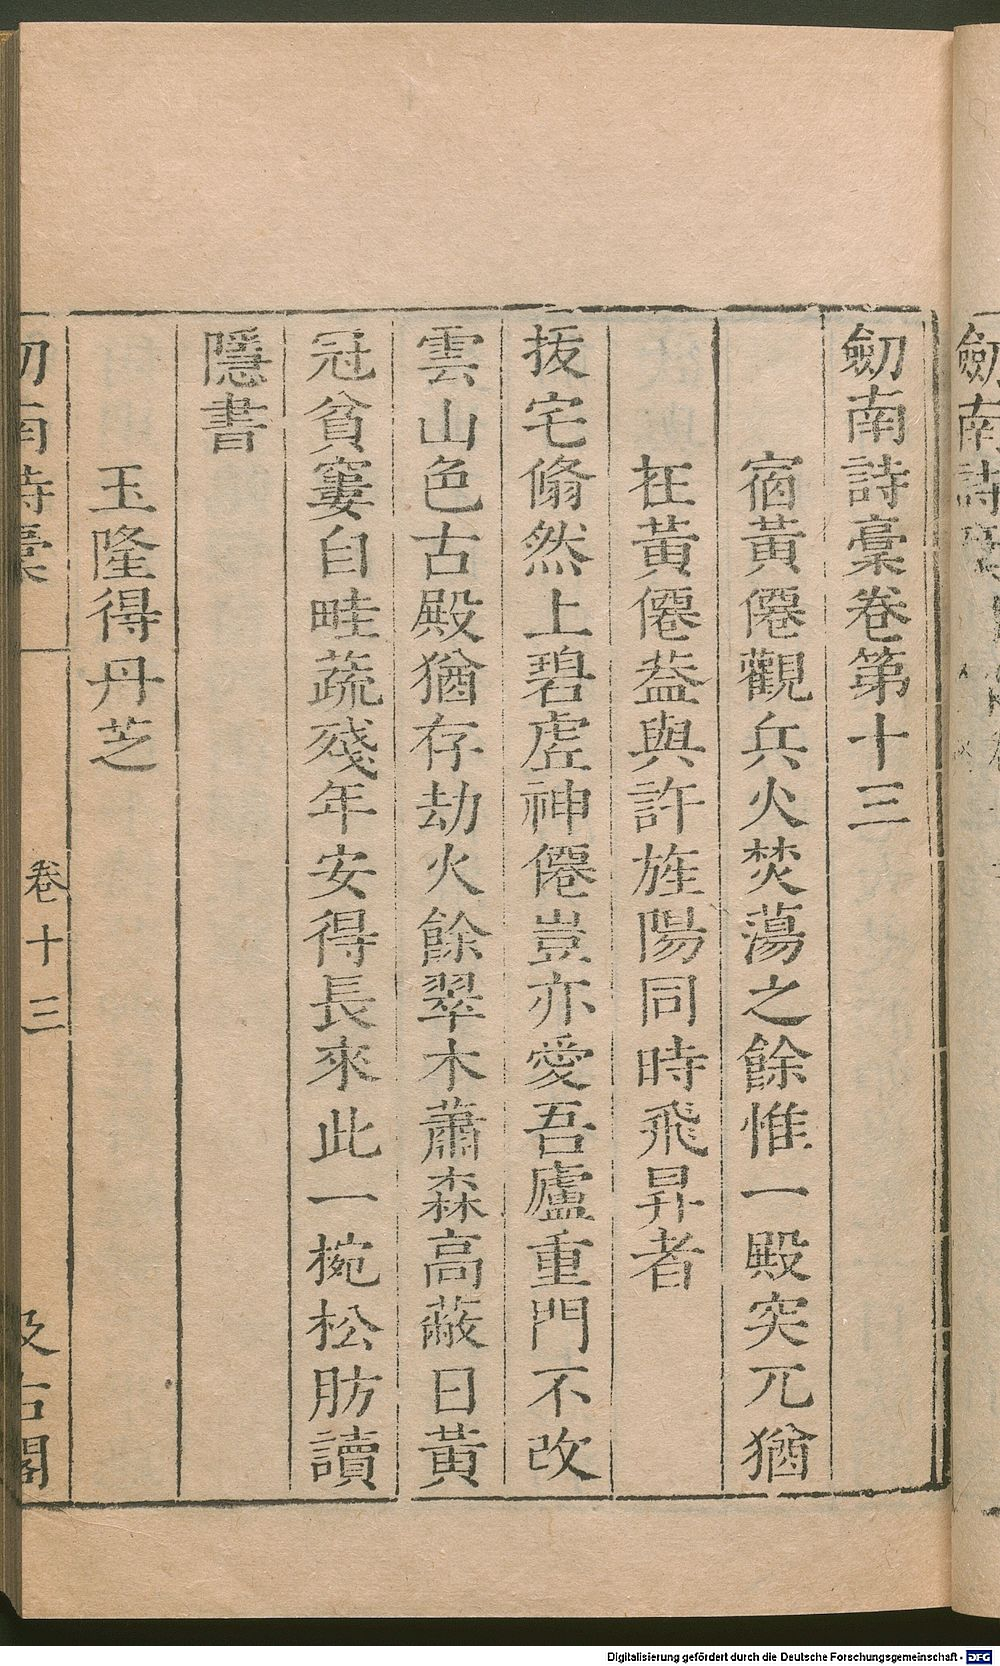 劒南詩稾卷第十三
宿黃僊觀兵火焚蕩之餘惟一殿突兀猶
在黃僊葢與許旌陽同時飛昇者
拔宅翛然上碧虛神僊豈亦愛吾廬重門不改
雲山色古殿猶存劫火餘翠木蕭森高蔽日黃
冠貧窶自畦蔬殘年安得長來此一椀松肪讀
隱書
玉隆得丹芝
劒南詩稾
卷十三
汲古閣
劒南詩
Digitalisierung gefördert durch die Deutsche Forschungsgemeinschaft - DFG